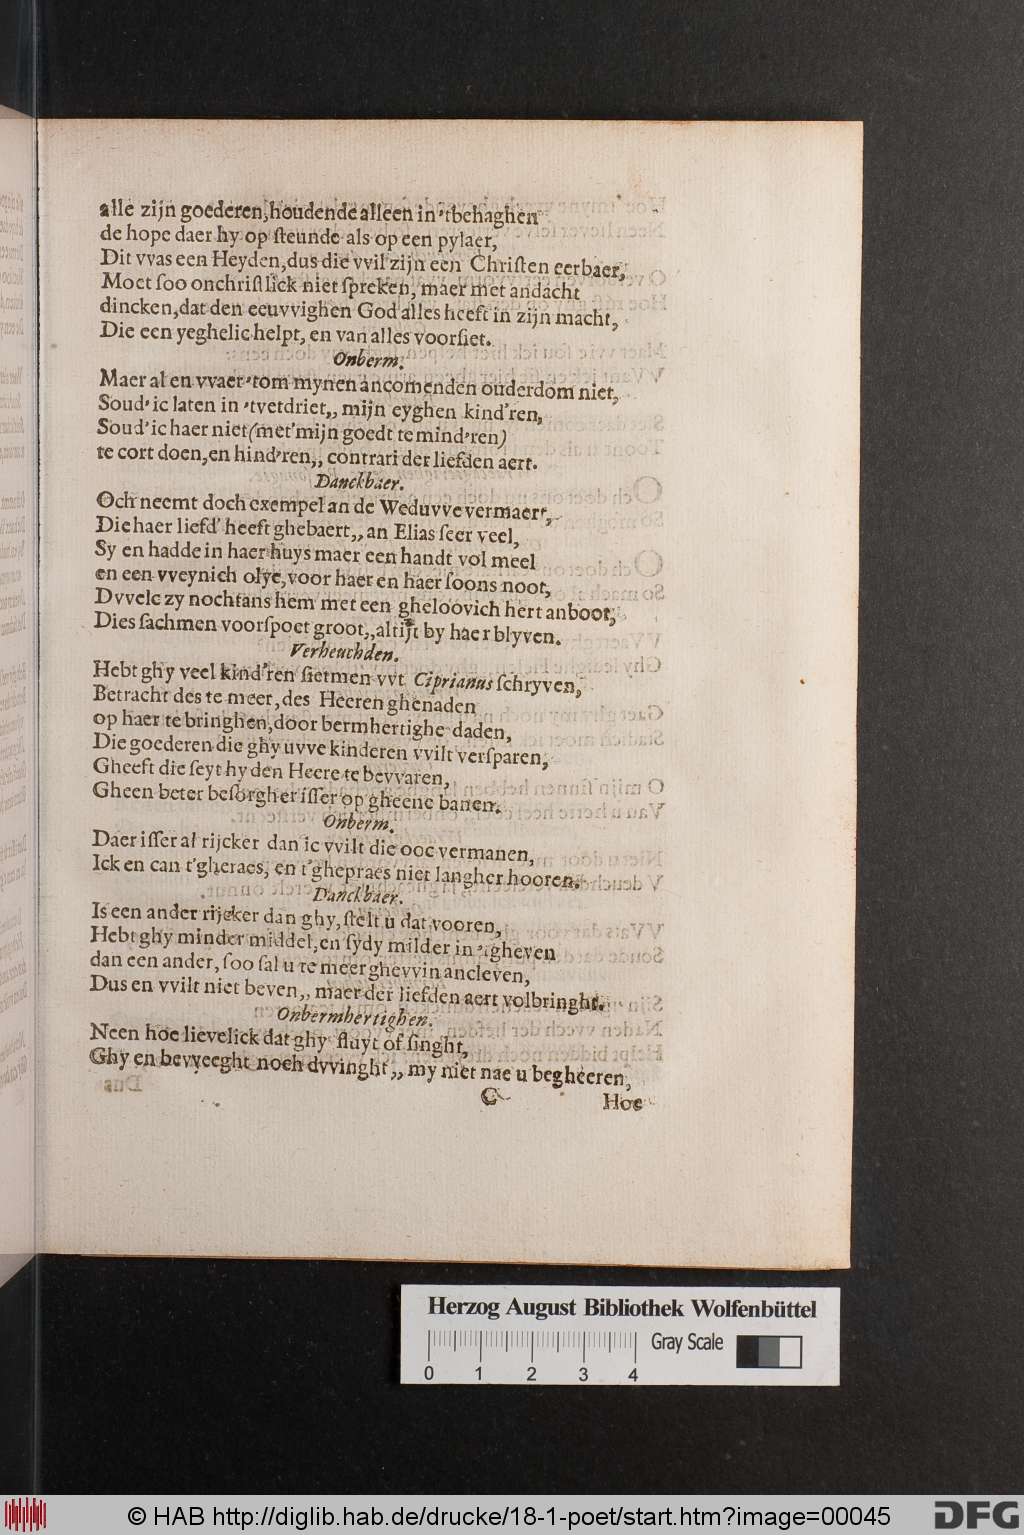 alle zijn goederen, houdende alleen in 'tbehaghen
de hope daer hy op ſteunde als op een pylaer,
Dit vvas een Heyden, dus die vvil zijn een Chriſten eerbaer,
Moet ſoo onchriſtlick niet ſpreken, maer met andacht
dincken, dat den eeuvvighen God alles heeft in zijn macht,
Die een yeghelic helpt, en van alles voorſiet.
Onberm.
Maer al en vvaer 'tom mynen ancomenden ouderdom niet,
Soud' ic laten in 'tvetdriet,, mijn eyghen kind'ren,
Soud' ic haer niet (met mijn goedt te mind'ren)
te cort doen, en hind'ren,, contrari der liefden aert.
Danckbaer.
Och neemt doch exempel an de Weduvve vermaert,
Die haer liefd' heeft ghebaert,, an Elias ſeer veel,
Sy en hadde in haer huys maer een handt vol meel
en een vveynich olye, voor haer en haer ſoons noot,
Dvvelc zy nochtans hem met een gheloovich hert anboot,
Dies ſachmen voorſpoet groot,, altijt by haer blyven.
Verheuchden.
Hebt ghy veel kind'ren ſietmen vvt Ciprianus ſchryven,
Betracht des te meer, des Heeren ghenaden
op haer te bringhen, door bermhertighe daden,
Die goederen die ghy uvve kinderen vvilt verſparen,
Gheeft die ſeyt hy den Heere te bevvaren,
Gheen beter beſorgher iſſer op gheene banen.
Onberm.
Daer iſſer al rijcker dan ic vvilt die ooc vermanen,
Ick en can t'gheraes, en t'ghepraes niet langher hooren.
Danckbaer.
Is een ander rijcker dan ghy, ſtelt u dat vooren,
Hebt ghy minder middel, en ſydy milder in 'tgheven
dan een ander, ſoo ſal u te meer ghevvin ancleven,
Dus en vvilt niet beven,, maer der liefden aert volbringht.
Onbermhertighen.
Neen hoe lievelick dat ghy fluyt of ſinght,
Ghy en bevveeght noch dvvinght,, my niet nae u begheeren,
G Hoe
Herzog August Bibliothek Wolfenbüttel
Gray Scale
0 1 2 3 4
© HAB http://diglib.hab.de/drucke/18-1-poet/start.htm?image=00045
DFG